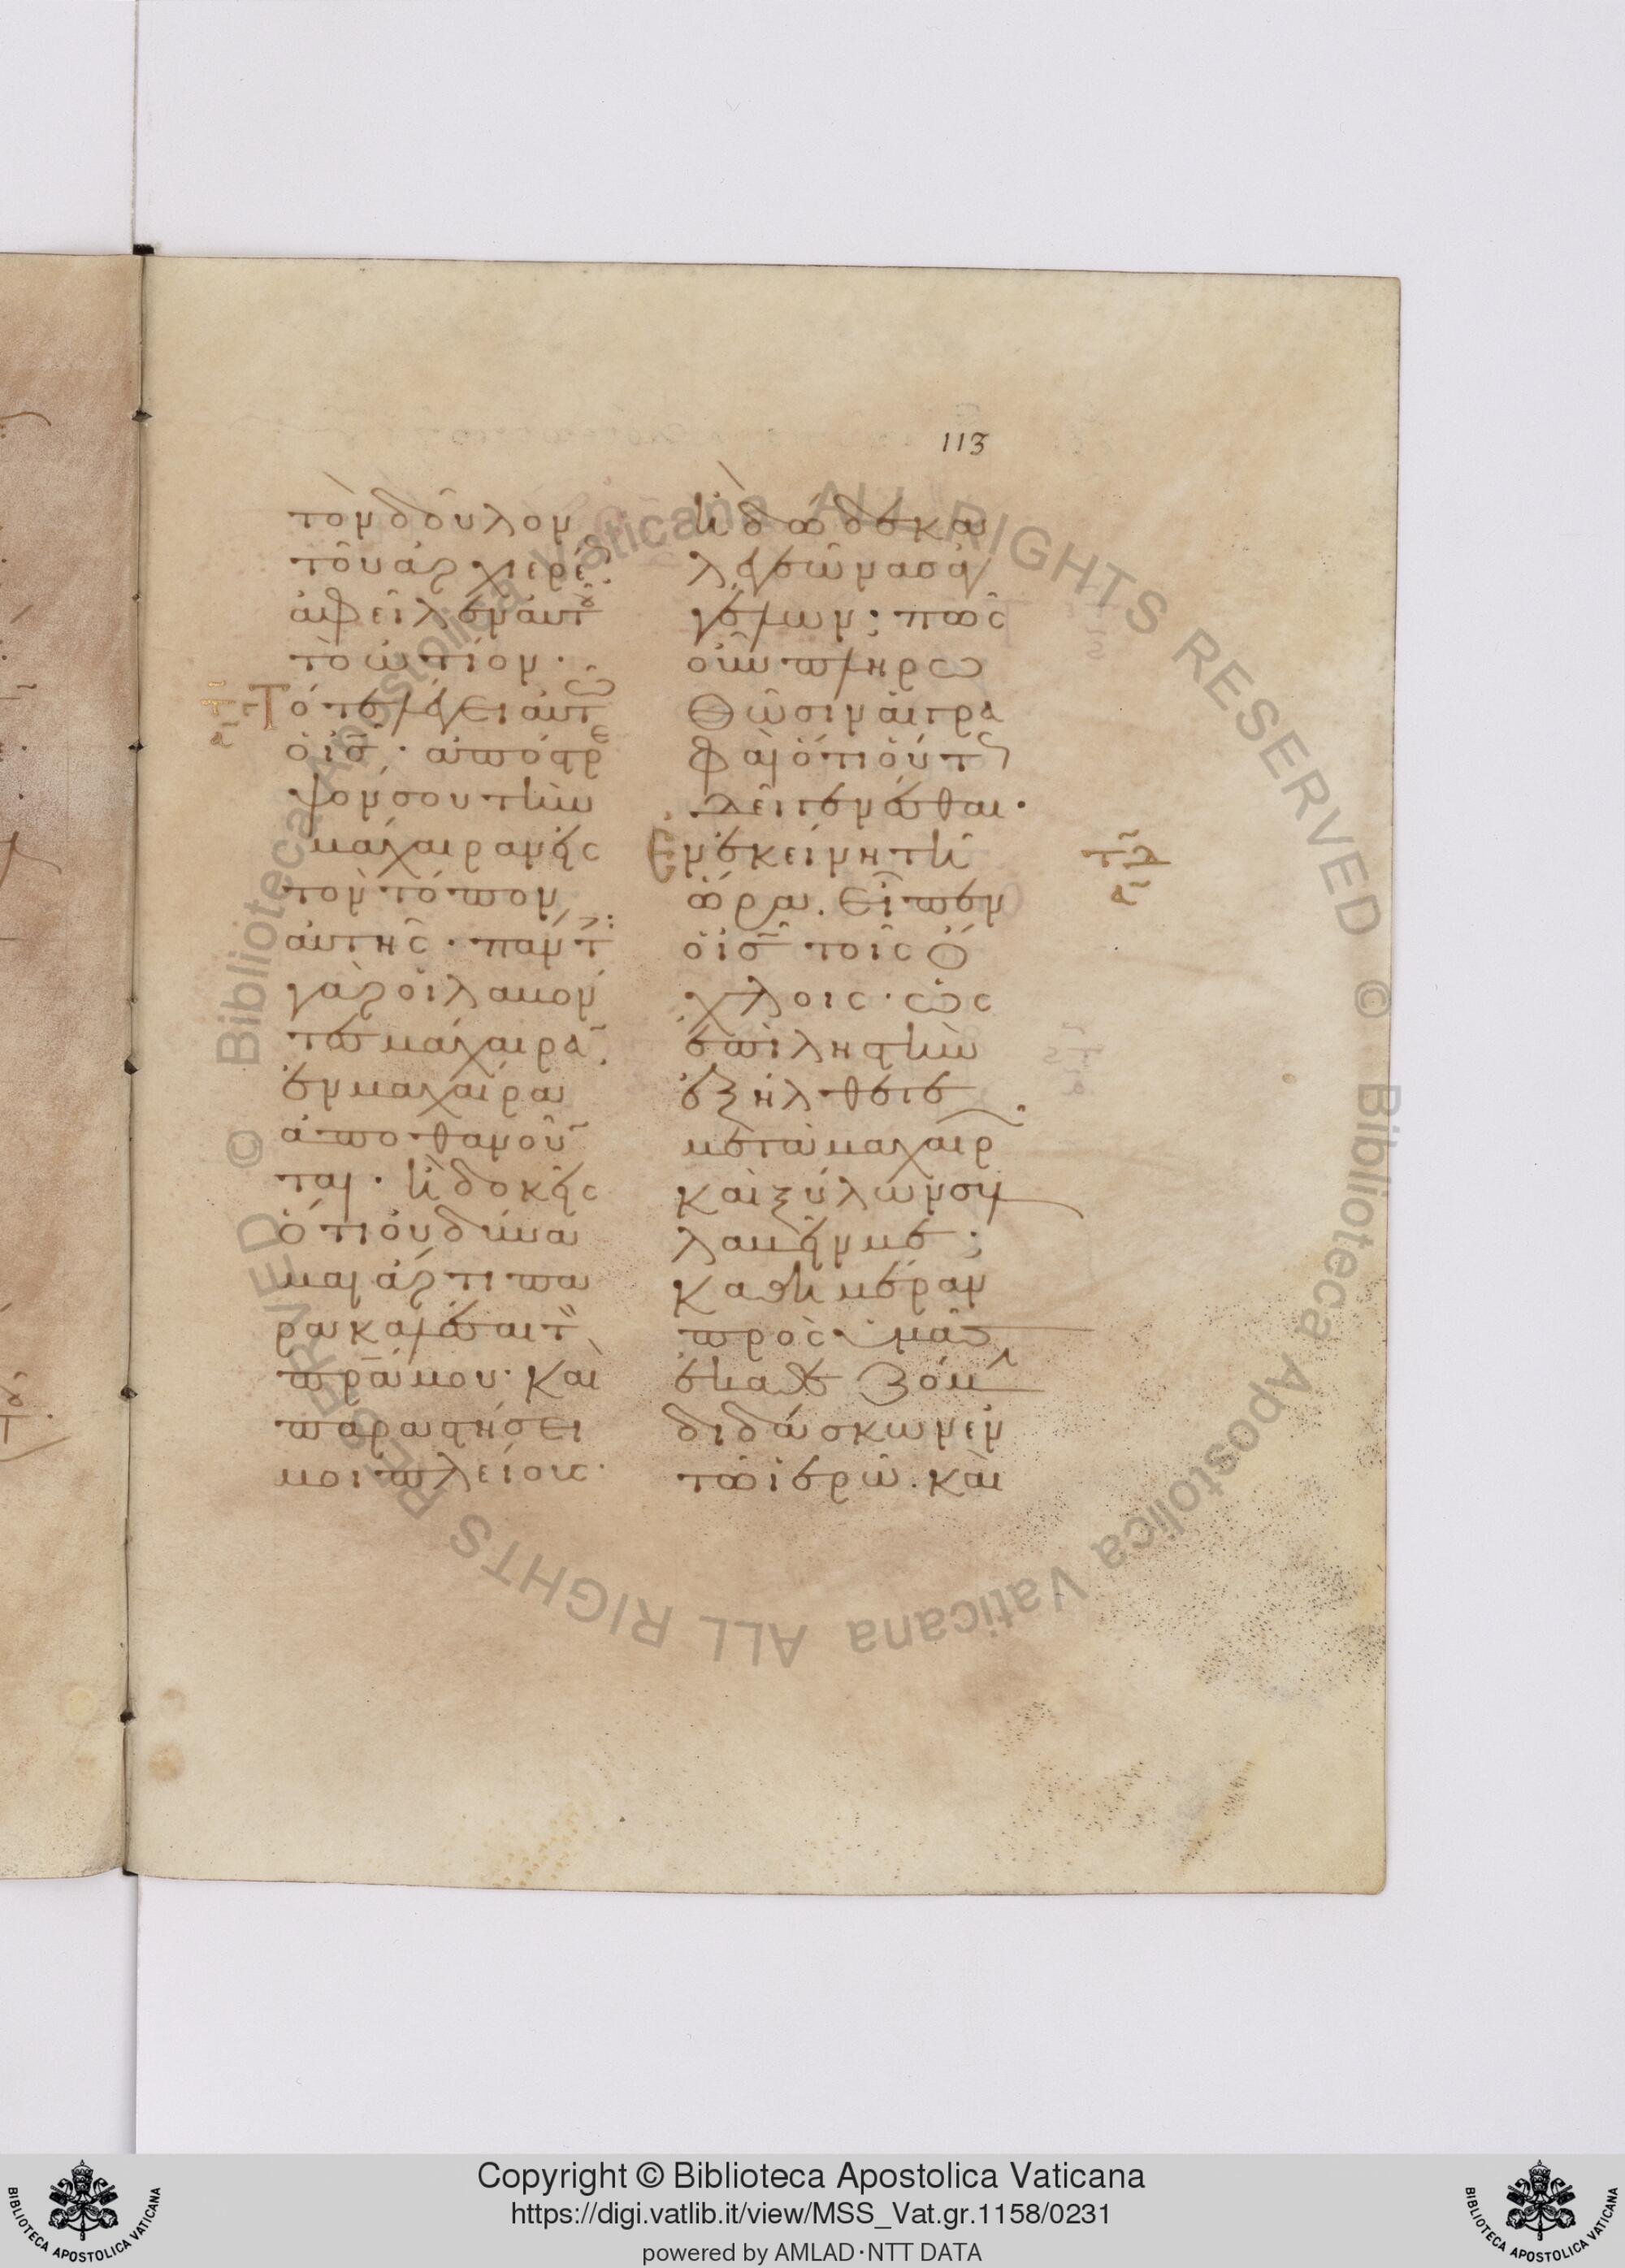 113
τὸν δοῦλον
τοῦ ἀρχιερέ
ἀφεῖλεν αὐτοῦ
τὸ ὠτίον·
Τότε λέγει αὐτῶ
ὁ ι̅ς̅· ἀπόστρε
ψόν σου τὴν
μάχαιραν εἰς
τὸν τόπον
αὐτῆς· πάντ
γὰρ οἱ λαβόν
τες μάχαιραν
ἐν μαχαίρα
ἀποθανοῦν
ται· ἢ δοκεῖς
ὅτι οὐ δύνα
μαι ἄρτι πα
ρακαλέσαι τ
π̅ρ̅α̅ μου· καὶ
παραστήσει
μοι πλείους·
ἢ δώδεκα
λεγεῶνας ἀγ
γέλων; πῶς
οὖν πληρω
θῶσιν αἱ γρα
φαὶ ὅτι οὕτ
δεῖ γενέσθαι·
Ἐν ἐκείνη τῆ
ὥρα. εἶπεν
ὁ ι̅ς̅ τοῖς ὄ
χλοις· ὡς
ἐπὶ ληστὴν
ἐξήλθετε
μετὰ μαχαιρ
καὶ ξύλων συλ
λαβεῖν με;
καθημέραν
πρὸς ὑμᾶς
ἐκαθεζόμ
διδάσκων ἐν
τῶ ἱερῶ. καὶ
Copyright © Biblioteca Apostolica Vaticana
https://digi.vatlib.it/view/MSS_Vat.gr.1158/0231
powered by AMLAD·NTT DATA
BIBLIOTECA APOSTOLICA VATICANA
BIBLIOTECA APOSTOLICA VATICANA
© Biblioteca Apostolica Vaticana ALL RIGHTS RESERVED
© Biblioteca Apostolica Vaticana ALL RIGHTS RESERVED